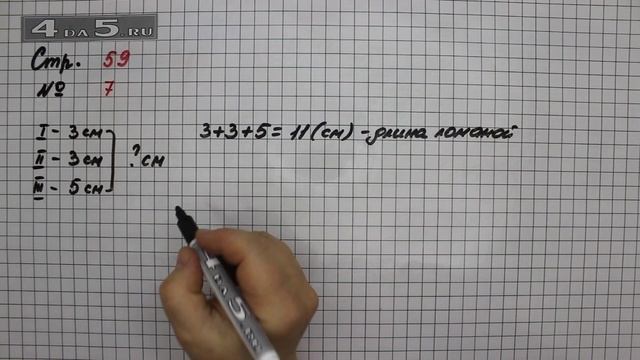 4 DA 5.RU
Стр. 59
№ 7
I - 3 см
II - 3 см
III - 5 см
? см
3+3+5 = 11 (см) - длина ломаной
4 DA 5.RU